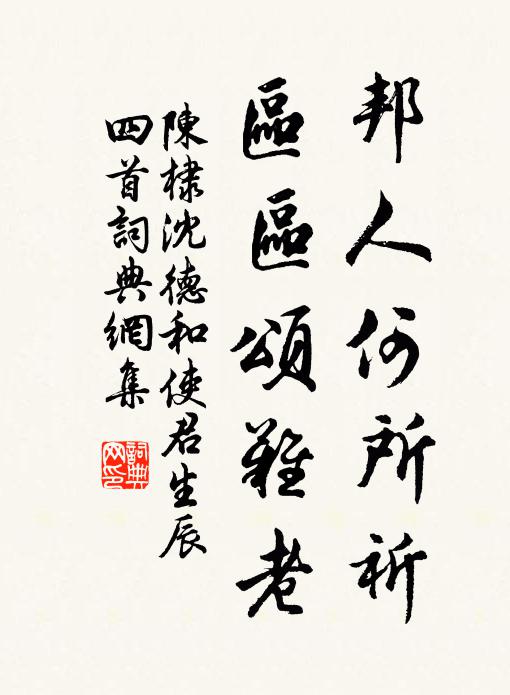 邦人何所祈
區區頌難老
陳棣沈德和使君生辰
四首詞典網集
詞典网印